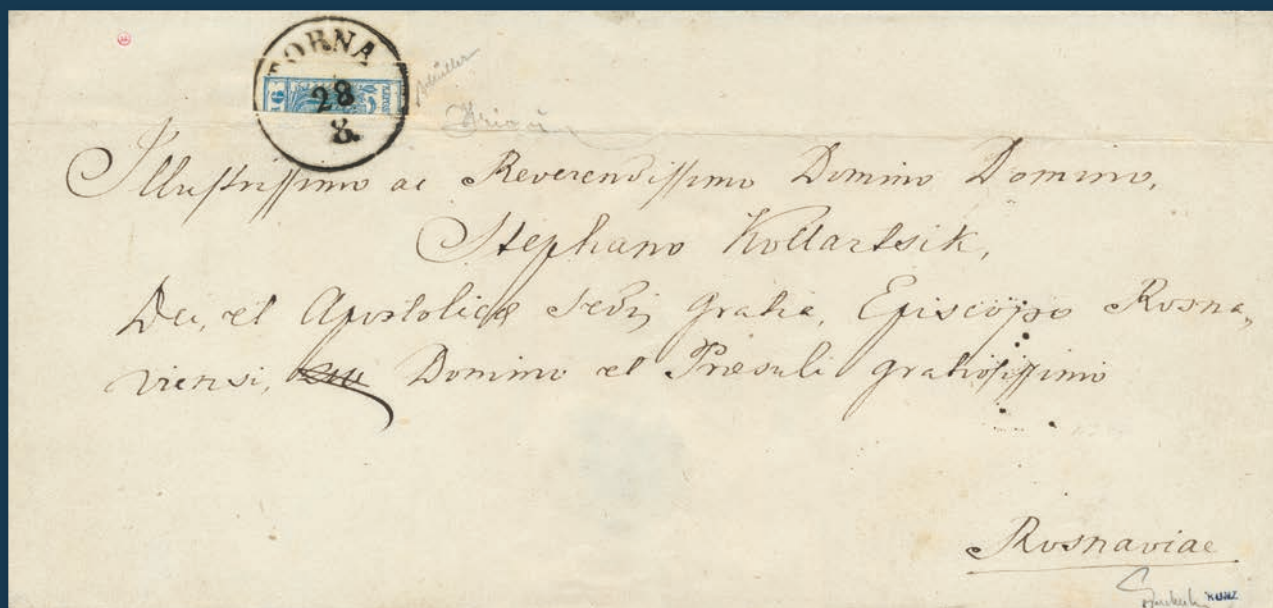 TORNA
28
8.
Illustrissimo ac Reverendissimo Domino Domino,
Stephano Kollartsik,
Dei, et Apostolicae Sedis gratia, Episcopo Rosna,
viensi, Domino et Praesuli gratiosissimo
Rosnaviae